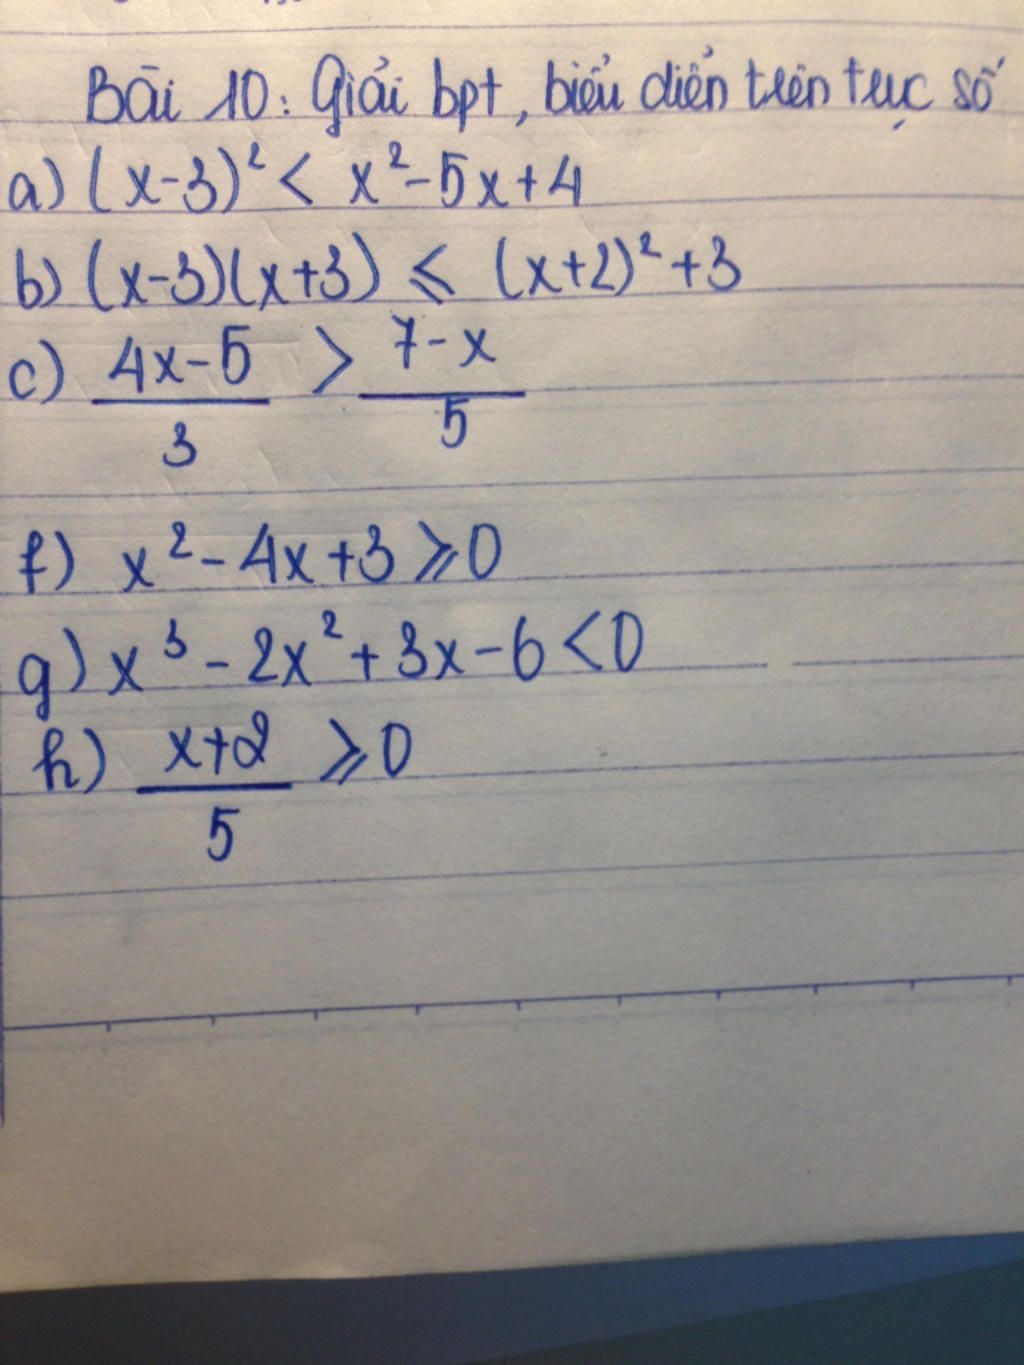 Bài 10: Giải bpt, biểu diển trên trục số
a) (x-3)² < x²-5x+4
b) (x-3)(x+3) ⩽ (x+2)²+3
c) \frac{4x-5}{3} > \frac{7-x}{5}
f) x²-4x+3 ⩾ 0
g) x³-2x²+3x-6<0
h) \frac{x+2}{5} ⩾ 0